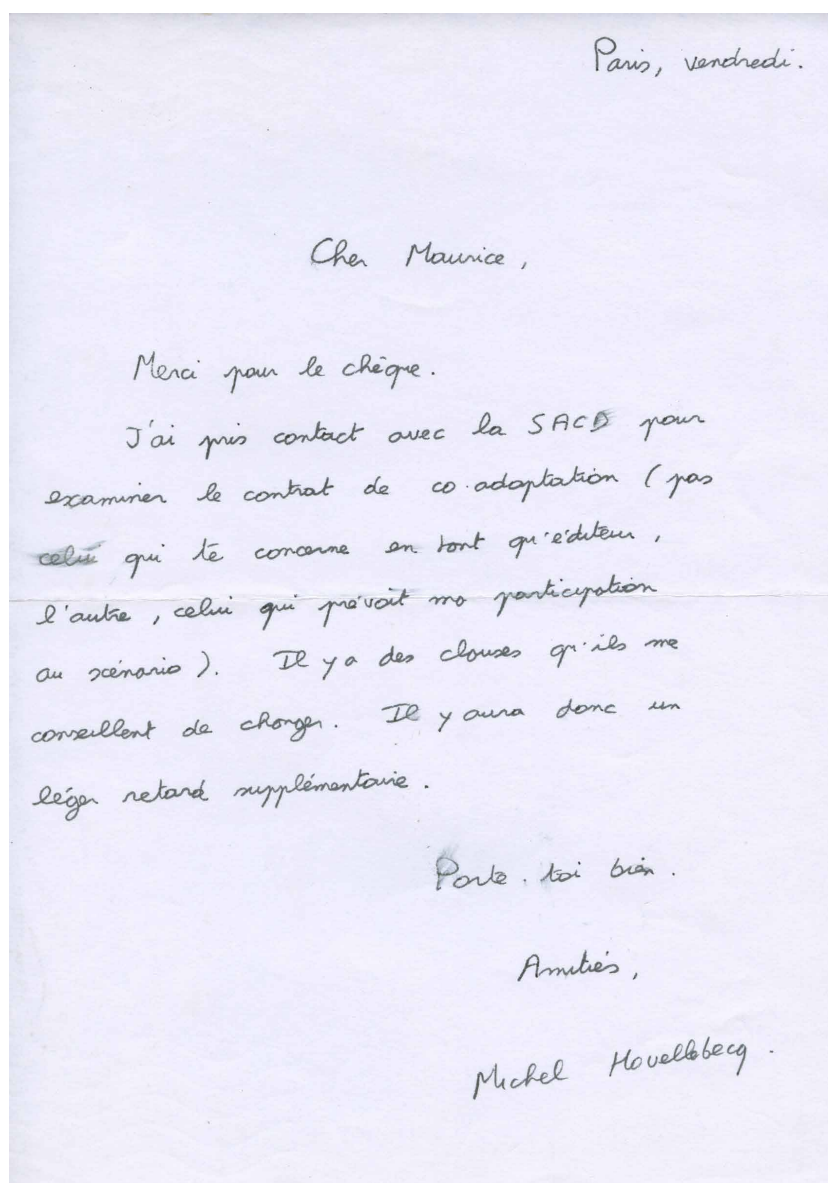 Paris, vendredi.
Cher Maurice,
Merci pour le chèque.
J'ai pris contact avec la SACD pour
examiner le contrat de co-adaptation (pas
celui qui te concerne en tant qu'éditeur,
l'autre, celui qui prévoit ma participation
au scénario). Il y a des clauses qu'ils me
conseillent de changer. Il y aura donc un
léger retard supplémentaire.
Porte-toi bien.
Amitiés,
Michel Houellebecq.